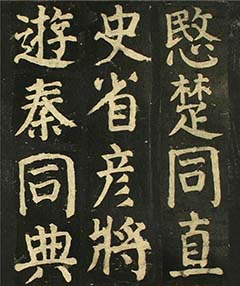 愍楚同直
史省彥將
遊秦同典